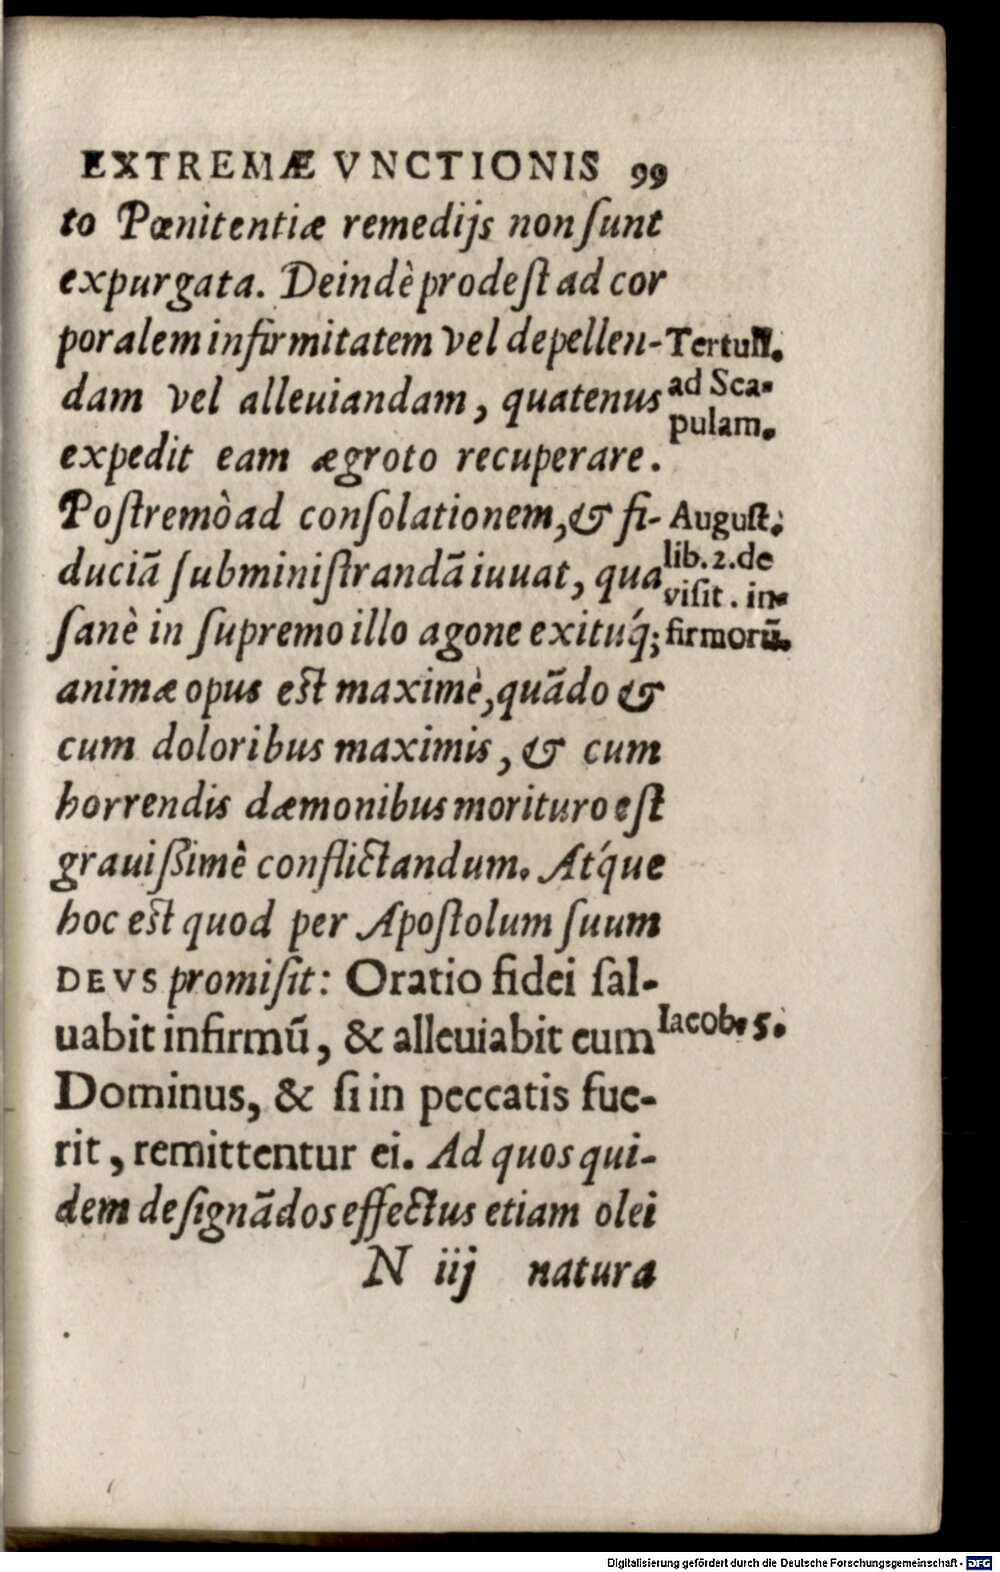 EXTREMÆ VNCTIONIS 99
to Pœnitentiæ remedijs non ſunt
expurgata. Deindè prodeſt ad cor
poralem infirmitatem vel depellen-
Tertull.
dam vel alleuiandam, quatenus
ad Sca-
pulam.
expedit eam ægroto recuperare.
Poſtremò ad conſolationem, & fi-
Auguſt.
duciã ſubminiſtrandã iuuat, qua
lib. 2. de
viſit. in-
ſanè in ſupremo illo agone exitúq;
firmorũ.
animæ opus eſt maximè, quãdo &
cum doloribus maximis, & cum
horrendis dæmonibus morituro eſt
grauiſſimè conflictandum. Atq́ue
hoc eſt quod per Apoſtolum ſuum
DEVS promiſit: Oratio fidei ſal-
uabit infirmũ, & alleuiabit eum
Iacob. 5.
Dominus, & ſi in peccatis fue-
rit, remittentur ei. Ad quos qui-
dem deſignãdos effectus etiam olei
N iij natura
Digitalisierung gefördert durch die Deutsche Forschungsgemeinschaft - DFG